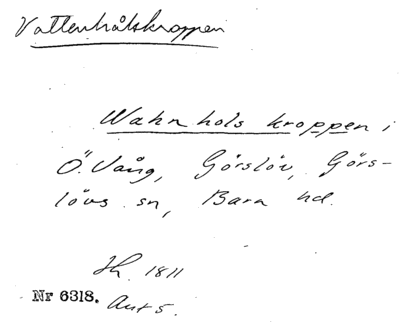 Vattenhålskroppen
Wahnhols kroppen i
Ö. Vång, Görslöv, Görs-
lövs sn, Bara hd.
Jh. 1811
Nr 6318. Akt 5.